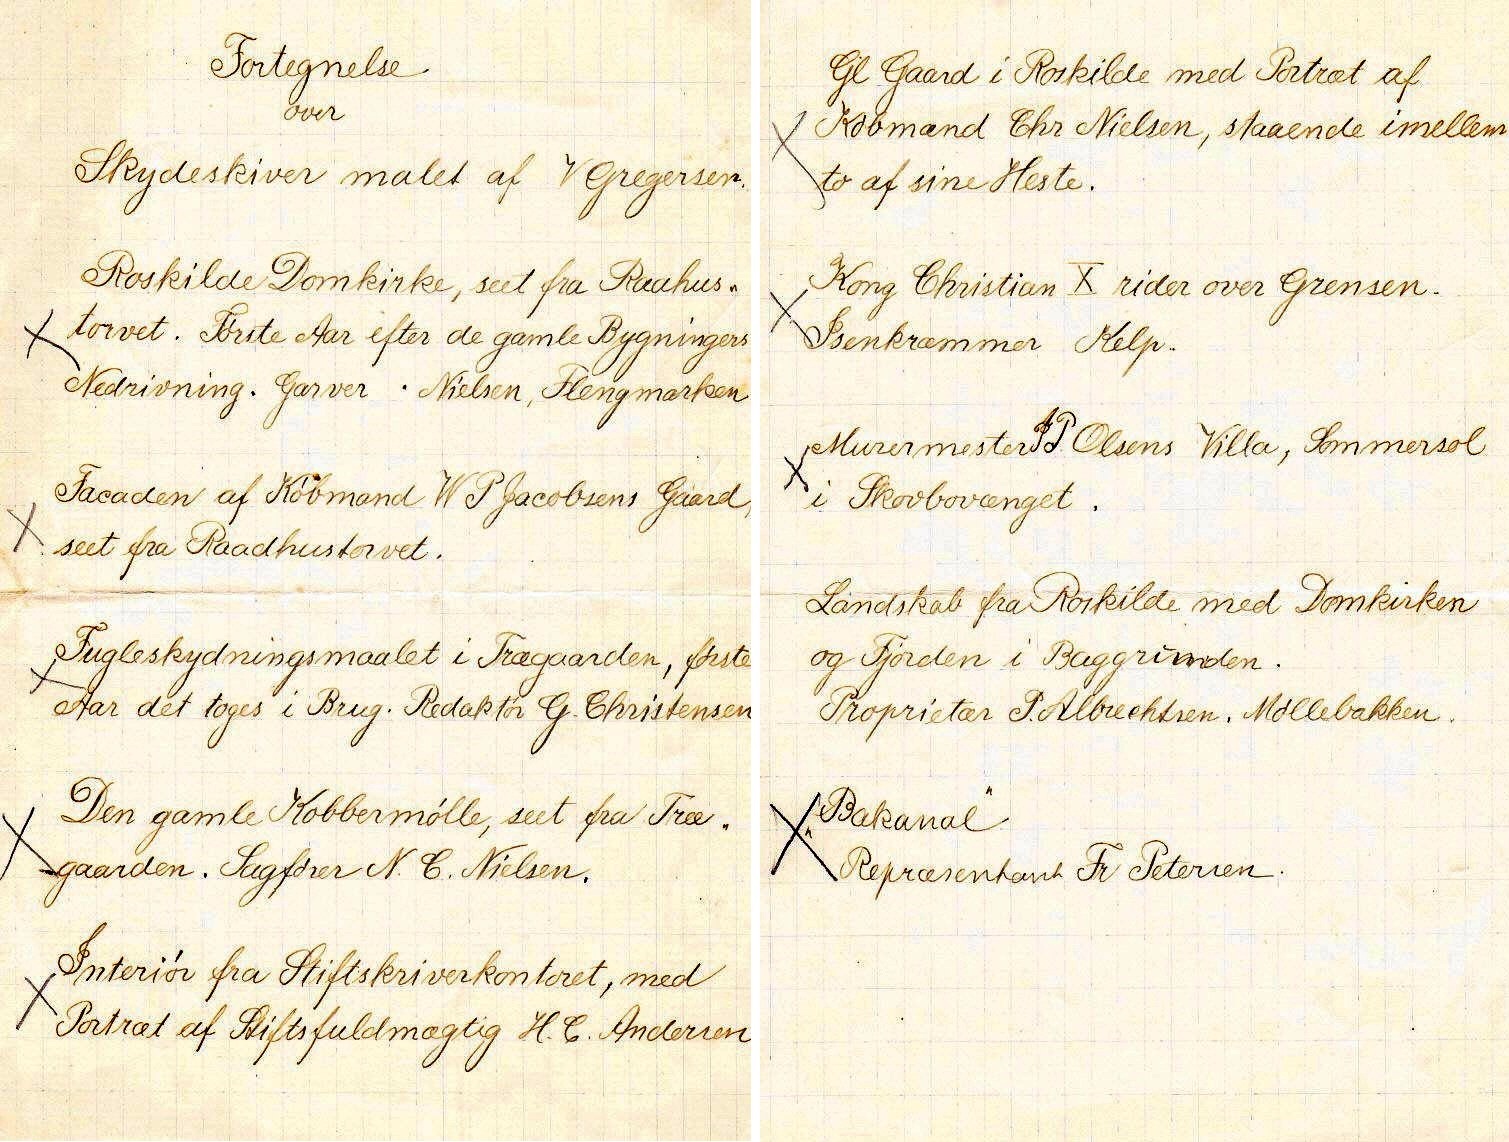 Fortegnelse
over
Skydeskiver malet af V Gregersen.
Roskilde Domkirke, seet fra Raahus„
torvet. Første Aar efter de gamle Bygningers
Nedrivning. Garver · Nielsen, Flengmarken
Facaden af Købmand W P Jacobsens Gaard,
seet fra Raadhustorvet.
Fugleskydningsmaalet i Trægaarden, første
Aar det toges i Brug. Redaktør G. Christensen
Den gamle Kobbermølle, seet fra Træ„
gaarden. Sagfører N. C. Nielsen.
Interiør fra Stiftskriverkontoret, med
Portræt af Stiftsfuldmægtig H. C. Andersen
Gl Gaard i Roskilde med Portræt af
Købmand Chr Nielsen, staaende imellem
to af sine Heste.
Kong Christian X rider over Grensen.
Isenkræmmer Kelp.
Murermester J P Olsens Villa, Sommersol
i Skovbovænget.
Landskab fra Roskilde med Domkirken
og Fjorden i Baggrunden.
Proprietær P. Albrechtsen. Møllebakken.
„Bakanal"
Repræsentant Fr Petersen.